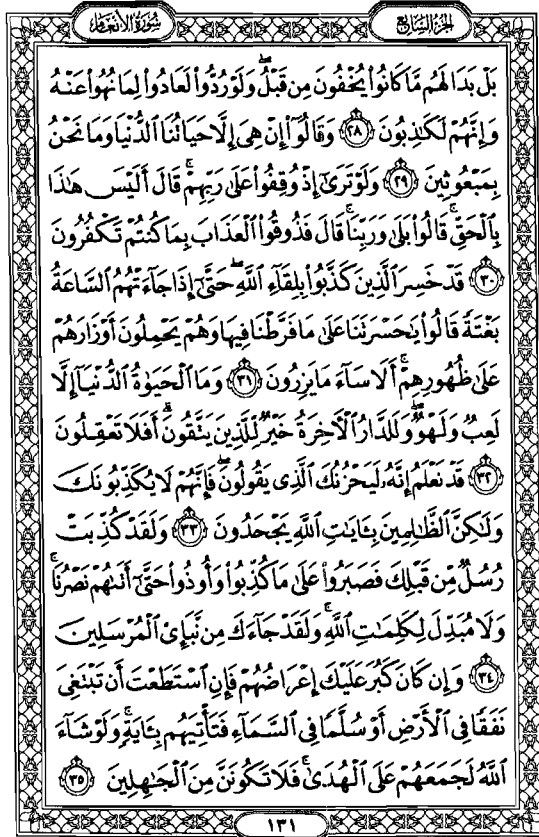 سُورَةُ الأَنْعَامِ
الجُزْءُ السَّابِعُ
بَلْ بَدَا لَهُم مَّا كَانُوا۟ يُخْفُونَ مِن قَبْلُ ۖ وَلَوْ رُدُّوا۟ لَعَادُوا۟ لِمَا نُهُوا۟ عَنْهُ
وَإِنَّهُمْ لَكَٰذِبُونَ ﴿٢٨﴾ وَقَالُوٓا۟ إِنْ هِىَ إِلَّا حَيَاتُنَا ٱلدُّنْيَا وَمَا نَحْنُ
بِمَبْعُوثِينَ ﴿٢٩﴾ وَلَوْ تَرَىٰٓ إِذْ وُقِفُوا۟ عَلَىٰ رَبِّهِمْ ۚ قَالَ أَلَيْسَ هَٰذَا
بِٱلْحَقِّ ۚ قَالُوا۟ بَلَىٰ وَرَبِّنَا ۚ قَالَ فَذُوقُوا۟ ٱلْعَذَابَ بِمَا كُنتُمْ تَكْفُرُونَ
﴿٣٠﴾ قَدْ خَسِرَ ٱلَّذِينَ كَذَّبُوا۟ بِلِقَآءِ ٱللَّهِ ۖ حَتَّىٰٓ إِذَا جَآءَتْهُمُ ٱلسَّاعَةُ
بَغْتَةً قَالُوا۟ يَٰحَسْرَتَنَا عَلَىٰ مَا فَرَّطْنَا فِيهَا وَهُمْ يَحْمِلُونَ أَوْزَارَهُمْ
عَلَىٰ ظُهُورِهِمْ ۚ أَلَا سَآءَ مَا يَزِرُونَ ﴿٣١﴾ وَمَا ٱلْحَيَوٰةُ ٱلدُّنْيَآ إِلَّا
لَعِبٌ وَلَهْوٌ ۖ وَلَلدَّارُ ٱلْءَاخِرَةُ خَيْرٌ لِّلَّذِينَ يَتَّقُونَ ۗ أَفَلَا تَعْقِلُونَ
﴿٣٢﴾ قَدْ نَعْلَمُ إِنَّهُۥ لَيَحْزُنُكَ ٱلَّذِى يَقُولُونَ ۖ فَإِنَّهُمْ لَا يُكَذِّبُونَكَ
وَلَٰكِنَّ ٱلظَّٰلِمِينَ بِـَٔايَٰتِ ٱللَّهِ يَجْحَدُونَ ﴿٣٣﴾ وَلَقَدْ كُذِّبَتْ
رُسُلٌ مِّن قَبْلِكَ فَصَبَرُوا۟ عَلَىٰ مَا كُذِّبُوا۟ وَأُوذُوا۟ حَتَّىٰٓ أَتَىٰهُمْ نَصْرُنَا ۚ
وَلَا مُبَدِّلَ لِكَلِمَٰتِ ٱللَّهِ ۚ وَلَقَدْ جَآءَكَ مِن نَّبَإِى۟ ٱلْمُرْسَلِينَ
﴿٣٤﴾ وَإِن كَانَ كَبُرَ عَلَيْكَ إِعْرَاضُهُمْ فَإِنِ ٱسْتَطَعْتَ أَن تَبْتَغِىَ
نَفَقًا فِى ٱلْأَرْضِ أَوْ سُلَّمًا فِى ٱلسَّمَآءِ فَتَأْتِيَهُم بِـَٔايَةٍ ۚ وَلَوْ شَآءَ
ٱللَّهُ لَجَمَعَهُمْ عَلَى ٱلْهُدَىٰ ۚ فَلَا تَكُونَنَّ مِنَ ٱلْجَٰهِلِينَ ﴿٣٥﴾
١٣١